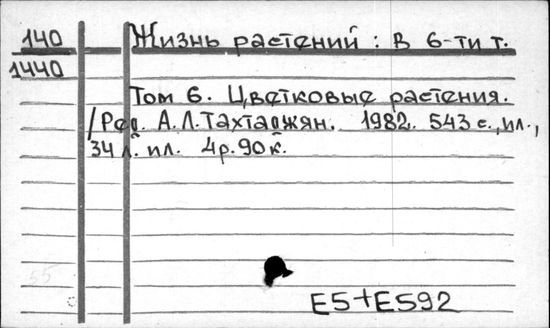 140 Жизнь растений : В 6-ти т.
1440
Том 6. Цветковые растения.
/Ред. А.Л.Тахтаджян. 1982. 543 с., ил.,
34 л. ил. 4р.90к.
55
Е5+Е592